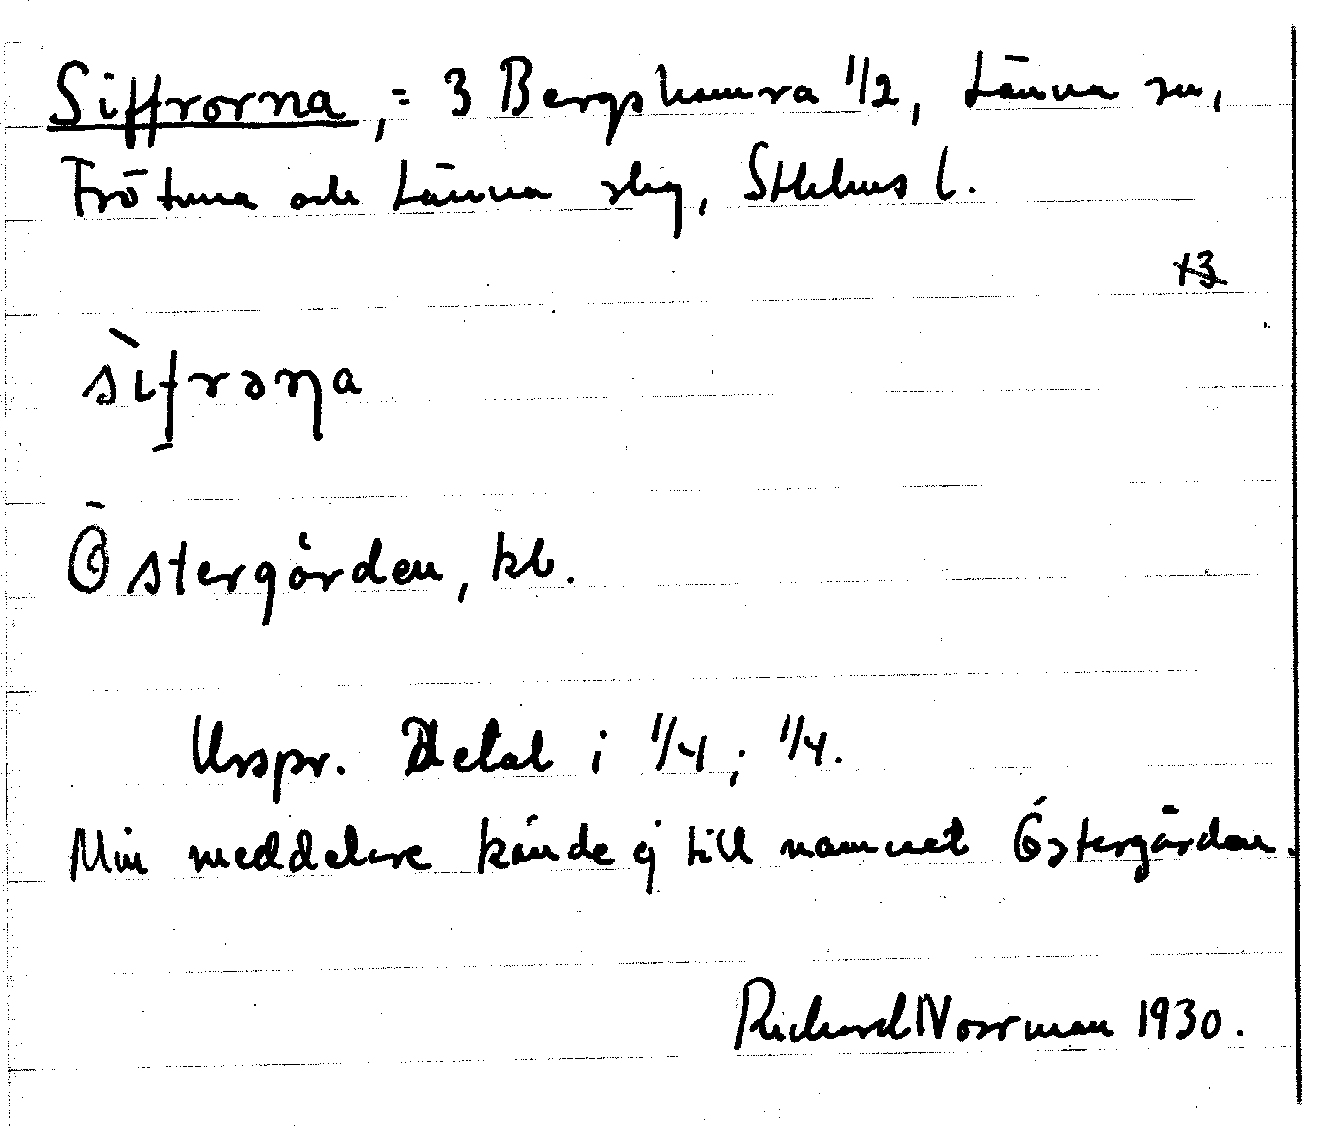 Siffrorna, = 3 Bergshamra 1/2, Länna sn,
Frötuna och Länna skg, Sthlms l.
13
sìfrəṇa
Östergården, kb.
Urspr. Delat i 1/4; 1/4.
Min meddelare kände ej till namnet Östergården.
Richard Norrman 1930.